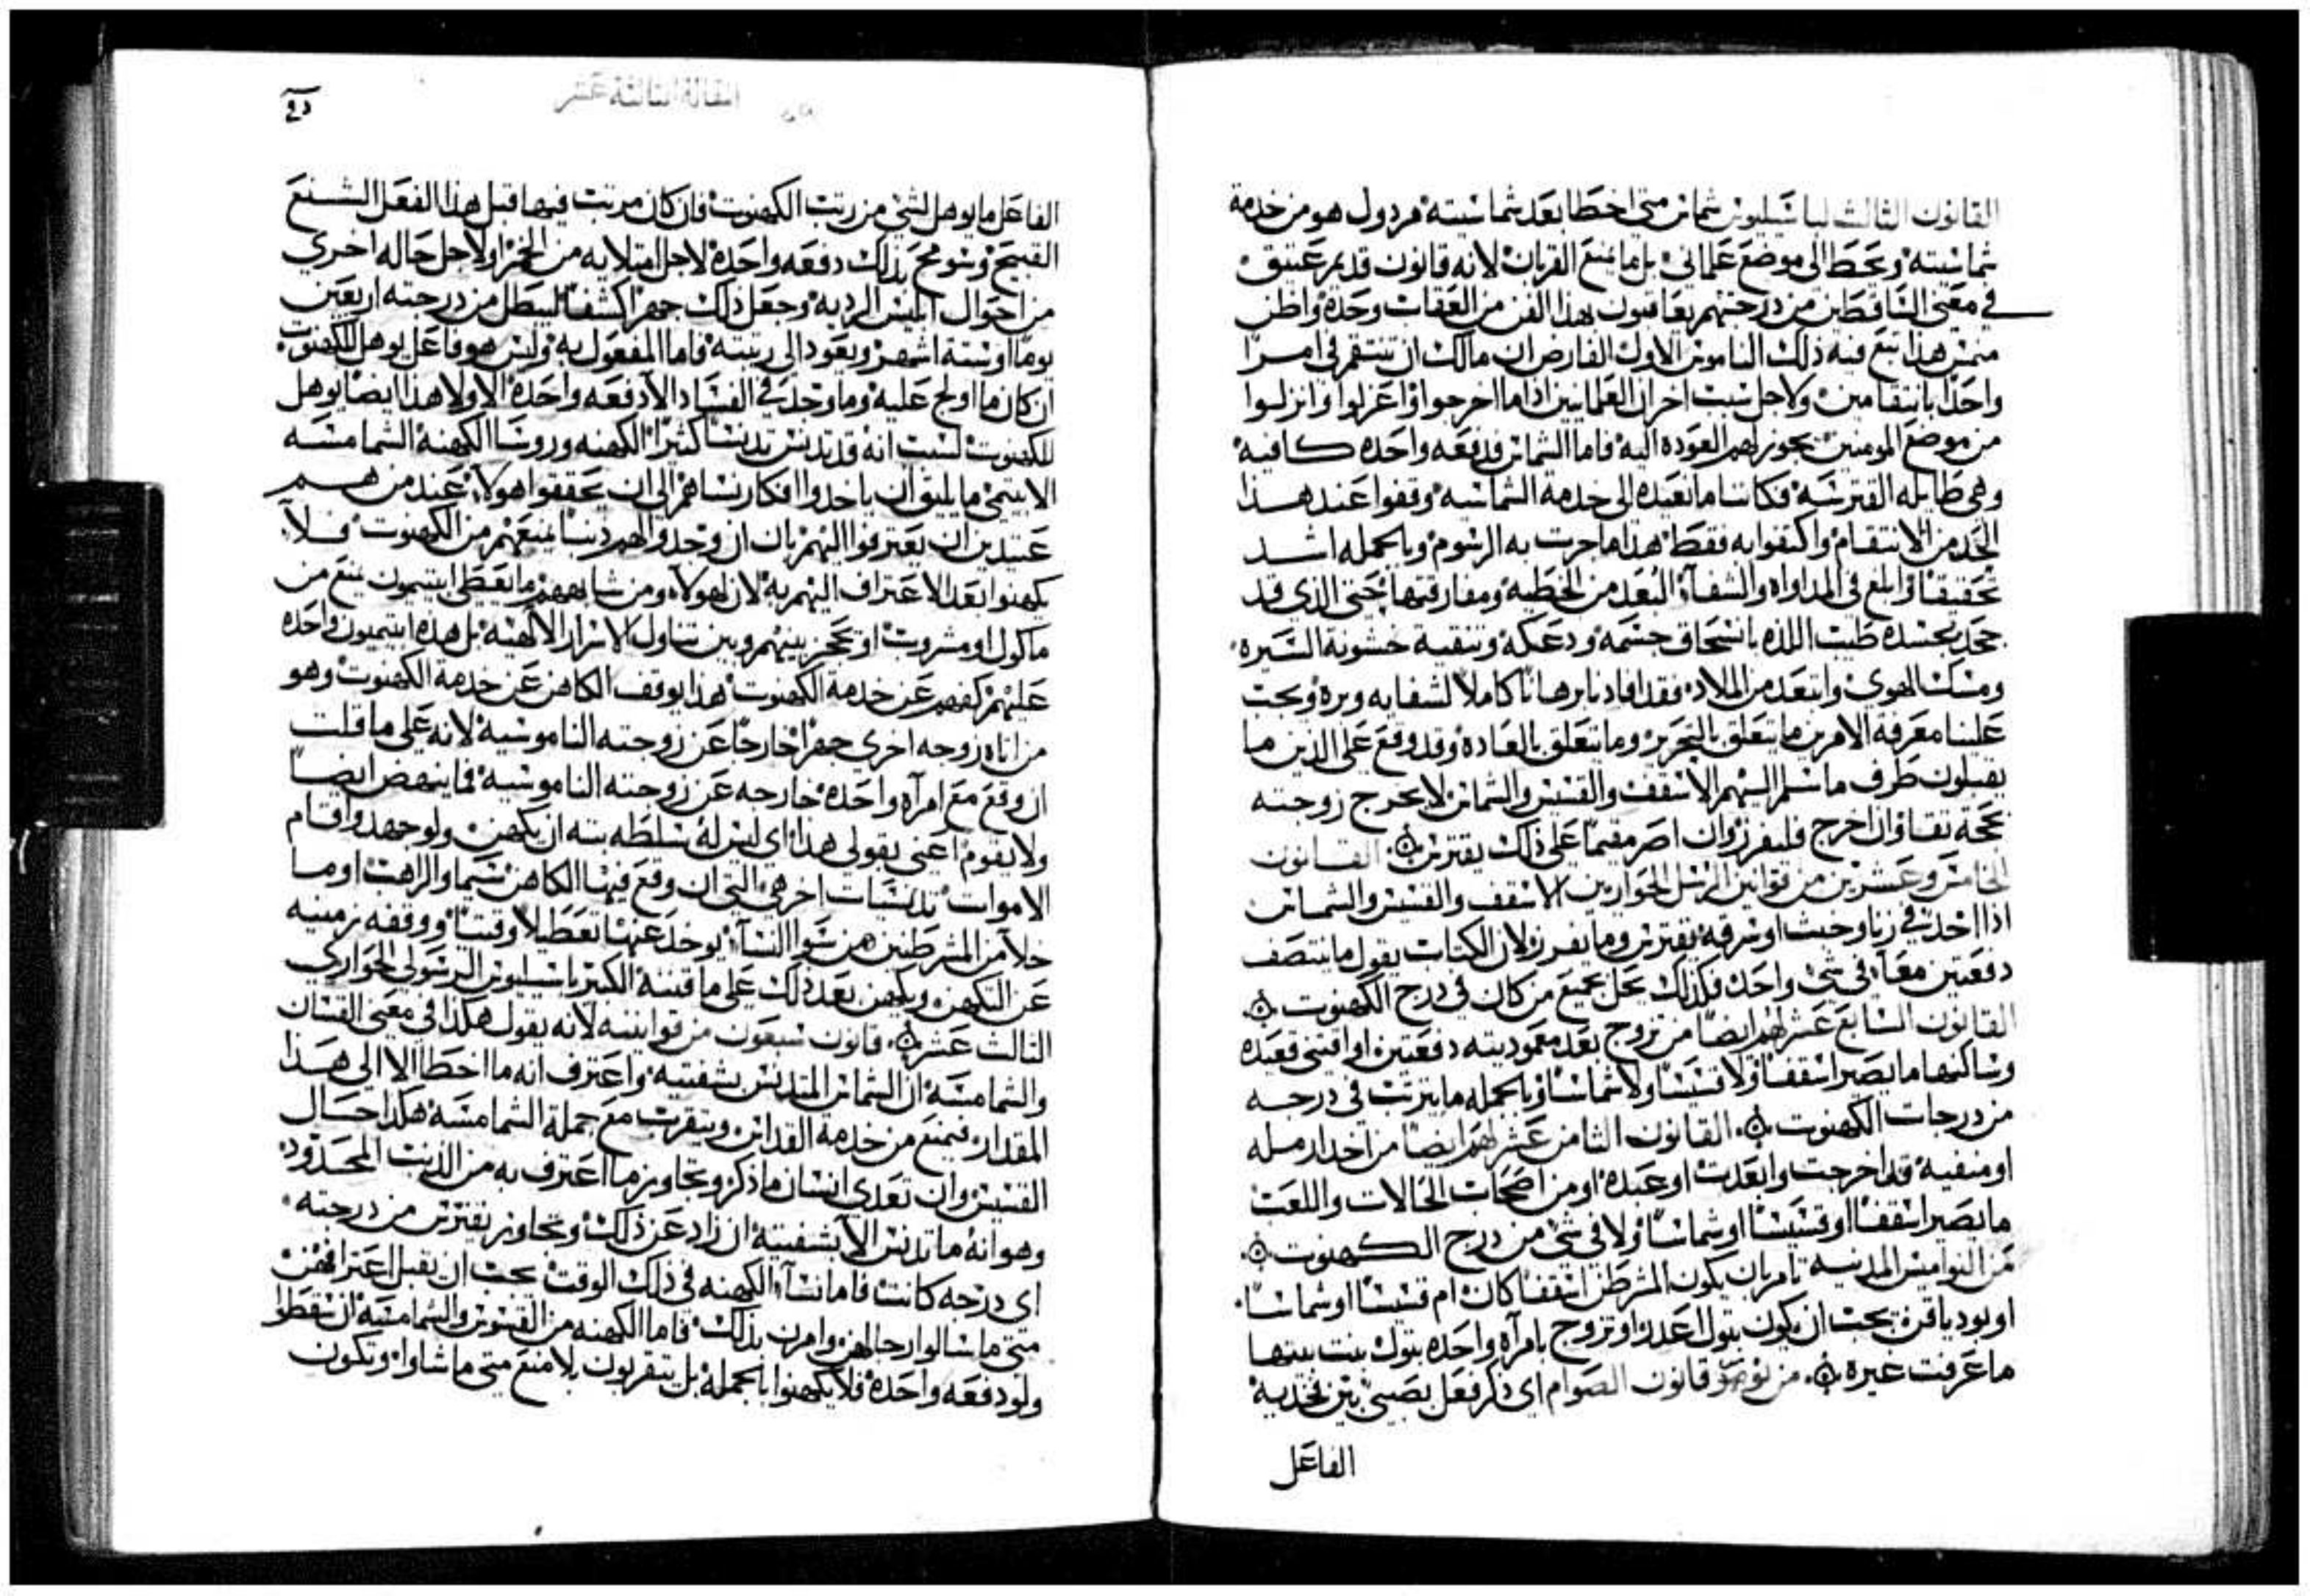 القانون الثالث لباسيليوس شماس متى اخطا بعد شماسيته مردول هو من خدمة
شماسيته ويحط الى موضع علماني بل ما يمنع القربان لانه قانون قديم عتيق
في معنى الساقطين من درجتهم يعاقبون بهذا الفن من العقاب وحده واظن
هذا تبع فيه ذلك الناموس الاول الفارض ان مالك ان تنتقم في امرا
واحدا بانتقامين ولاجل سبب اخر ان العلمانيين اذا ما اخرجوا واعزلوا وانزلوا
من موضع المومنين يجوز لهم العوده اليه فاما الشماس فدفعه واحده كافيه
وهي طايله القترسه فكانما ما تعيده الى خدمة الشماسيه وقفوا عند هذا
الحد من الانتقام واكتفوا به فقط هذا ما جرت به الرسوم وبالجمله اشد
تحقيقا وابلغ في المداواه والشفآء البعد من الخطيه ومفارقتها حتى الذي قد
جحد بجسده طيب اللذه بانسحاق جسمه ودعكه وتنقية خشونة السيره
ومسك الهوى وابتعد من الملاد فقد افادنا برهانا كاملا لشفايه وبره ويجب
علينا معرفة الامرين ما يتعلق بالتحرير وما يتعلق بالعاده وقد وقع على الذين ما
يقبلون طرف ما سلم اليهم الاسقف والقسيس والشماس لا يخرج زوجته
بحجة تقا وان اخرج فليفرز وان اصر مقيما على ذلك يقترس ۞ القانون
الخامس وعشرين من قوانين الرسل الحواريين الاسقف والقسيس والشماس
اذا اخد في زنا وحنث او سرقه يقترس وما يفرز لان الكتاب يقول ما ينتصف
دفعتين معا في شي واحد فكذلك يحل بجميع من كان في درج الكهنوت ۞
القانون السابع عشر لهم ايضا من تزوج بعد معموديته دفعتين او اقتنى قعيده
وساكنها ما يصير اسقفا ولا قسيسا ولا شماسا وبالجمله ما يترتب في درجه
من درجات الكهنوت ۞ القانون الثامن عشر لهم ايضا من اخد ارمله
او منفيه قد اخرجت وابعدت او عبده او من اصحاب الخالات واللعب
ما يصير اسقفا او قسيسا او شماسا ولا في شي من درج الكهنوت ۞
من النواميس المدنيه تامر بان يكون المشرطن اسقفا كان ام قسيسا او شماسا
او بودياقن يجب ان يكون بتول اعدل او تزوج بامرآه واحده بتول بنت بيتها
ما عرفت غيره ۞ من قانون الصوام اي ذكر فعل بصبي بين فخديه
الفاعل
المقالة الثالثة عشر
الفاعل ما يوهل لشي من رتب الكهنوت فان كان مرتب فيها قبل هذا الفعل الشنيع
القبيح وسومح بذلك دفعه واحده لاجل امتلايه من الخمر او لاجل حاله اخرى
من احوال ابليس الرديه وجعل ذلك جهرا كشفا ليبطل من درجته اربعين
يوما او ستة اشهر ويعود الى رتبته فاما المفعول به وليس هو فاعل يوهل للكهنوت
ان كان ما اولج عليه وما وجد في الفساد الا دفعه واحده الاولا هذا ايضا يوهل
للكهنوت لسبب انه قد يدنس تدنسا كثيرا الكهنه وروسا الكهنة الشمامسه
الابتهي ما يليق ان ياخدوا افكار نساهم الى ان يحققوا هولآ عند من هم
عتيدين ان يعترفوا اليهم بان ان وجدوا لهم دنبا يمنعهم من الكهنوت فلا
يكهنوا بعد الاعتراف اليهم به لان لهولآء ومن شابههم ما يعطى ابتيمون يمنع من
ماكول او مشروب او يحجز بينهم وبين تناول الاسرار الالهيه بل هذه ابتيميون واحده
عليهم كفهم عن خدمة الكهنوت هذا يوقف الكاهن عن خدمة الكهنوت وهو
من اتاه زوجه اخرى جهرا خارجا عن زوجته الناموسيه لانه على ما قلت
ان وقع مع امرآه واحده خارجه عن زوجته الناموسيه فما ينهض ايضا
ولا يقوم اعني بقولي هذا اي ليس له سلطه بته ان يكهن ولو جهد واقام
الاموات تدنسات اخر هي التي ان وقع فيها الكاهن سيما والراهب او ما
خلا من المشرطنين من سوا النسآء يوخد عنها تعطيلا وقتيا ووقفه زمنيه
عن التكهن ويكهن بعد ذلك على ما قننه الكبير باسيليوس الرسولي الحواري
الثالث عشر ۞ قانون سبعون من قوانينه لانه يقول هكذا في معنى القسان
والشمامسه ان الشماس المتدنس بشفتيه واعترف انه ما اخطا الا الى هذا
المقدار فيمنع من خدمة القداس ويتقرب مع جملة الشمامسه هكذا حال
القسيس وان تعدى انسان ما ذكر وتجاوز ما اعترف به من الذنب المحدود
وهو انه ما تدنس الا بشفتيه ان زاد عن ذلك وتجاوز يقترس من درجته
اي درجه كانت فاما نسآء الكهنه في ذلك الوقت يجب ان يقبل اعترافهن
متى ما سالوا رجالهن وامرن بذلك فاما الكهنه من القسوس والشمامسه ان سقطوا
ولو دفعه واحده فلا يكهنوا بالجمله بل يتقربون بلا منع متى ما شاوا وتكون